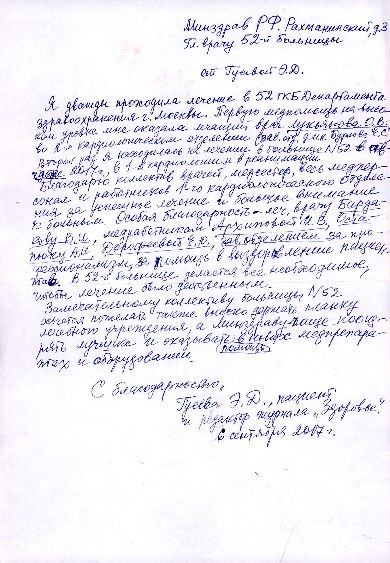 Минздрав РФ. Рахмановский д.3
Гл. врачу 52-й больницы
от Гусевой Э.Д.
Я дважды проходила лечение в 52 ГКБ Департамента
здравоохранения г. Москвы. Первую медпомощь на высо-
ком уровне мне оказала лечащий врач Лукьянова О.В.
во 2-м кардиологическом отделении
Второй раз я находилась на лечении в больнице N52 в
2017 г., в 1-й кардиологии и реанимации.
Благодарю коллектив врачей, медсестер, весь медпер-
сонал и работников 1-го кардиологического отделе-
ния за душевное лечение и большое внимание
к больным. Особая благодарность леч. врачу
В.И., медработникам Архиповой И.В.,
А.И. Дорофеевой Е.Ю., зав. отделением за про-
фессионализм, за помощь в выздоровлении пациен-
тов. В 52-й больнице делается всё необходимое,
чтобы лечение было достойным.
Замечательному коллективу больницы N52
хочется пожелать также высоко держать планку
лечебного учреждения, а Минздраву чаще поощ-
рять лучших и оказывать помощь в новых медпрепара-
тах и оборудовании.
С благодарностью,
Гусева Э.Д., пациент
и редактор журнала „Здоровье“
6 сентября 2017 г.